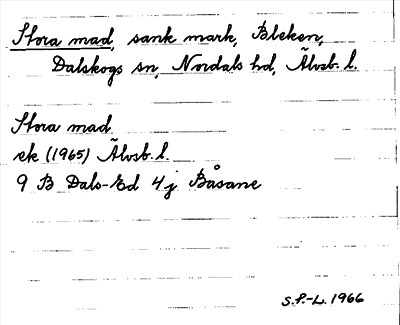 Stora mad, sank mark, Bleken,
Dalskogs sn, Nordals hd, Älvsb. l.
Stora mad
ek (1965) Älvsb. l.
9 B Dals-Ed 4j Båsane
S.P.-L. 1966